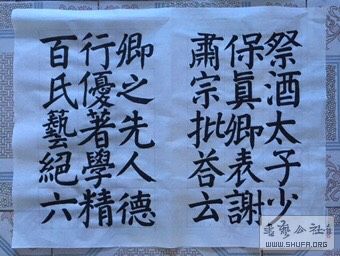 祭酒太子少
保真卿表謝
肅宗批荅云
卿之先人德
行優著學精
百氏藝絕六
書藝公社
WWW.SHUFA.ORG